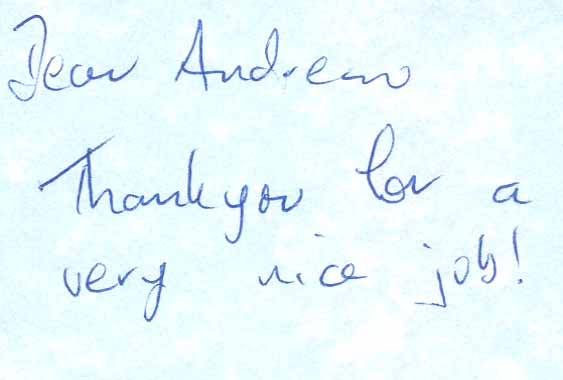 Dear Andrew
Thankyou for a
very nice job!